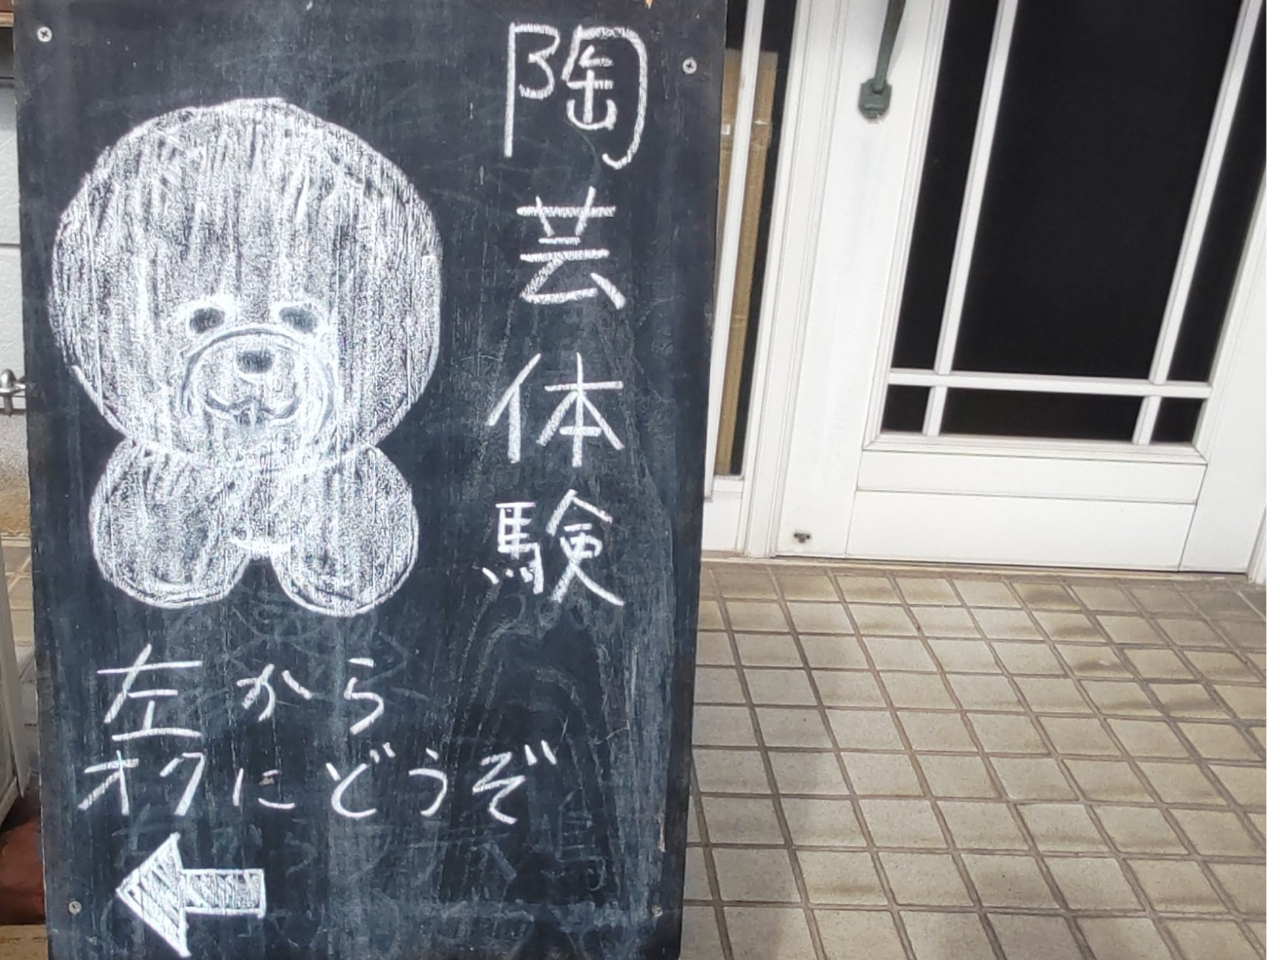 陶芸体験
左から
オクにどうぞ